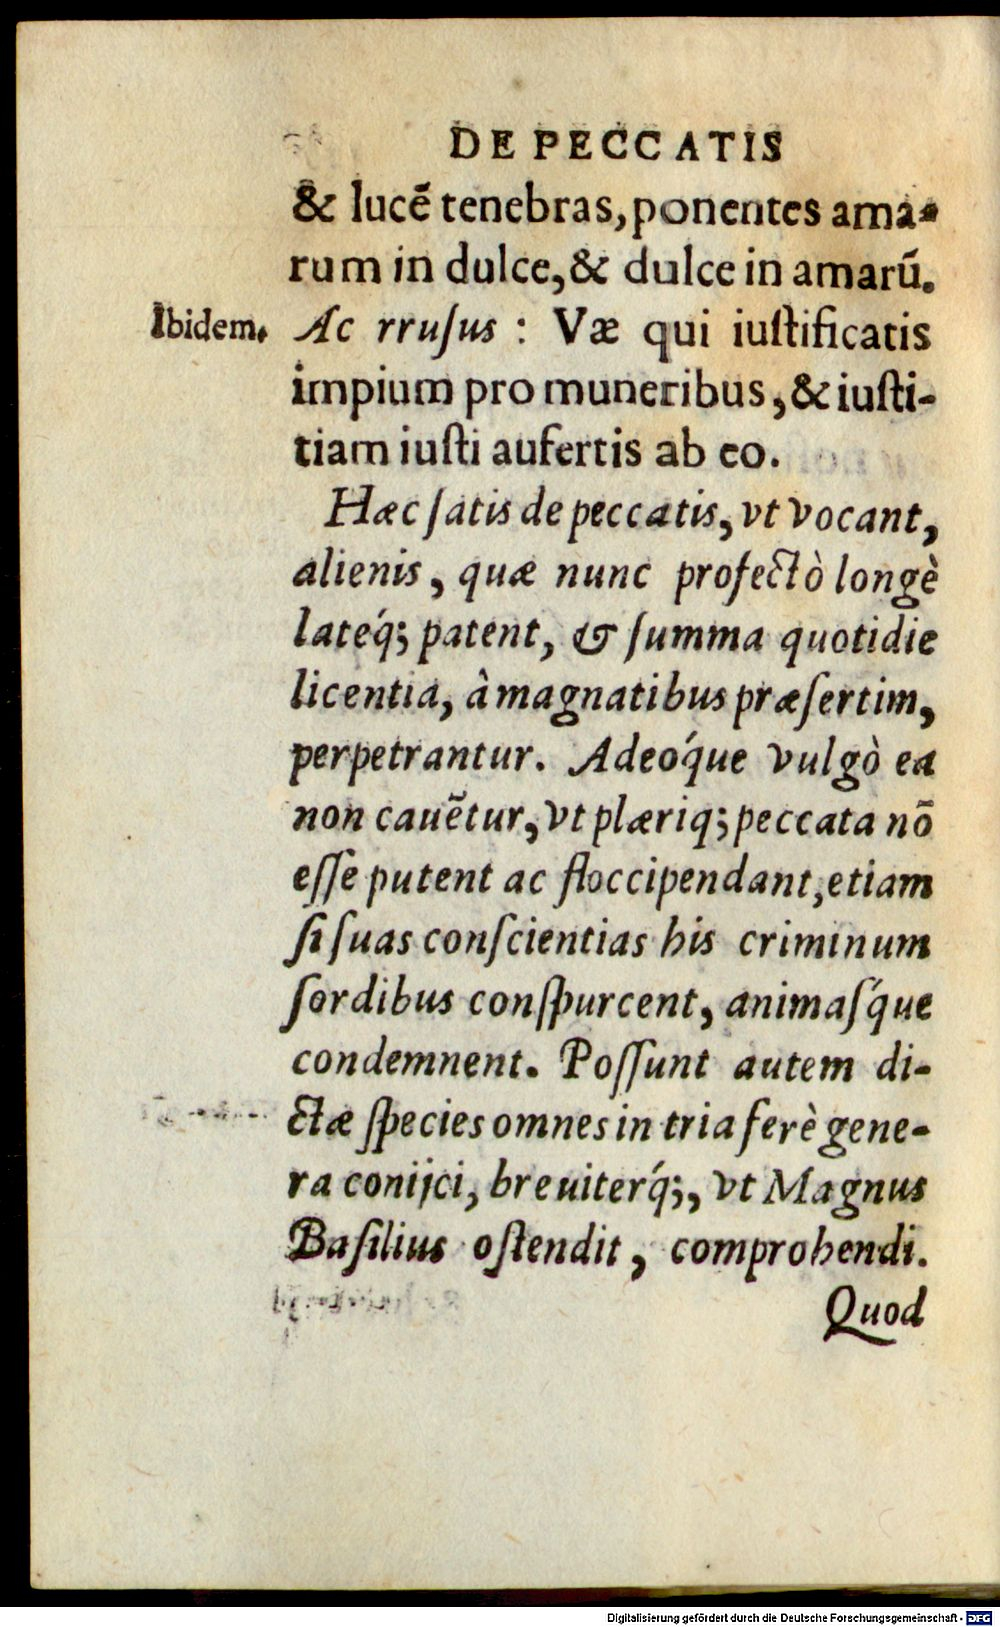 DE PECCATIS
& lucē tenebras, ponentes ama-
rum in dulce, & dulce in amarū.
Ibidem. Ac rruſus : Væ qui iuſtificatis
impium pro muneribus, & iuſti-
tiam iuſti aufertis ab eo.
Hæc ſatis de peccatis, vt vocant,
alienis, quæ nunc profectò longè
lateq́; patent, & ſumma quotidie
licentia, à magnatibus præſertim,
perpetrantur. Adeóque vulgò ea
non cauētur, vt plæriq; peccata nō
eſſe putent ac floccipendant, etiam
ſi ſuas conſcientias his criminum
ſordibus conſpurcent, animaſq́ue
condemnent. Poſſunt autem di-
ctæ ſpecies omnes in tria ferè gene-
ra conijci, breuiterq́;, vt Magnus
Baſilius oſtendit, comprohendi.
Quod
Digitalisierung gefördert durch die Deutsche Forschungsgemeinschaft - DFG